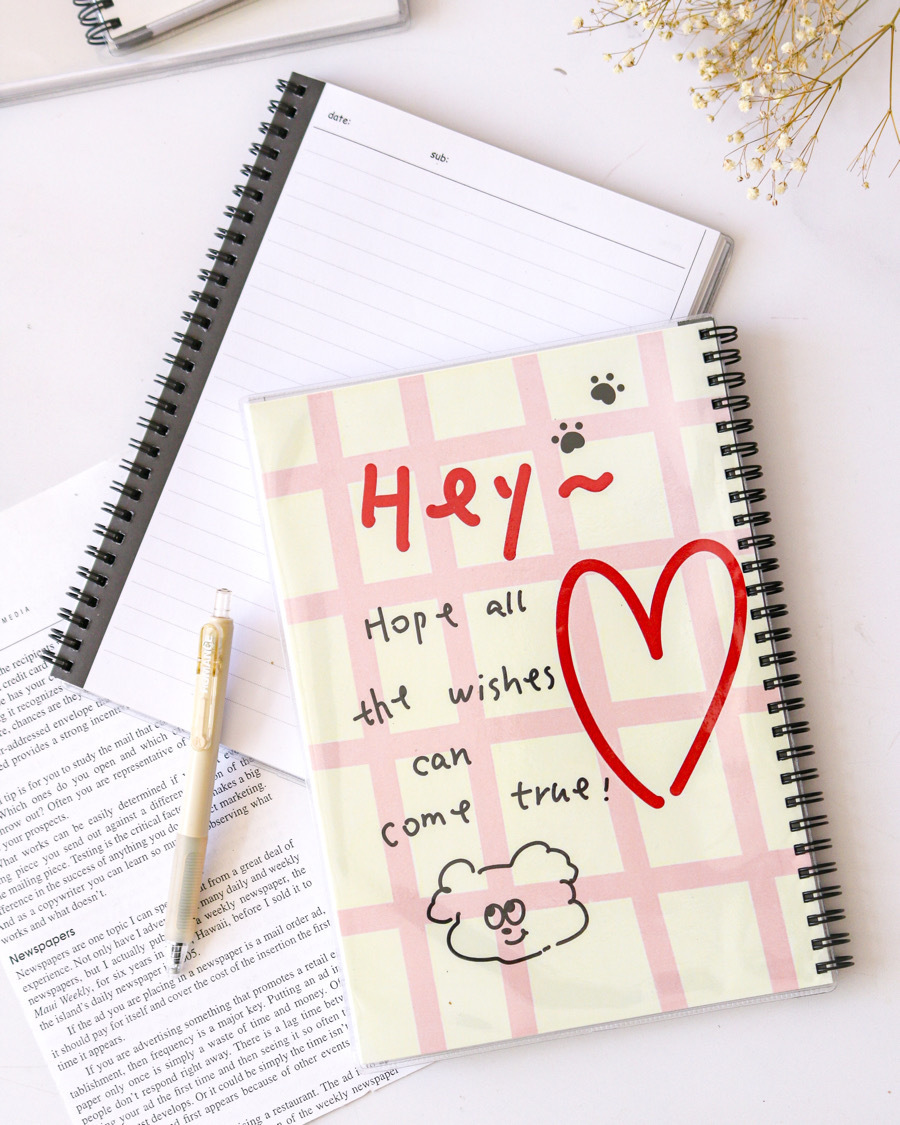 date:
sub:
Hey~
Hope all
the wishes
can
come true!
MEDIA
the recipients
credit card
e has your
g it recognizes
e, chances are they
-addressed envelope
d provides a strong incent
tip is for you to study the mail that
Which ones do you open and which
hrow out? Often you are representative of
your prospects.
What works can be easily determined if
ing piece you send out against a different
he mailing piece. Testing is the critical factor makes a big
ference in the success of anything you do ct marketing.
And as a copywriter you can learn so mu observing what
works and what doesn't.
Newspapers
Newspapers are one topic I can spe t from a great deal of
experience. Not only have I adver many daily and weekly
newspapers, but I actually pub a weekly newspaper, the
Maui Weekly, for six years in Hawaii, before I sold it to
the island's daily newspaper in 05.
If the ad you are placing in a newspaper is a mail order ad,
it should pay for itself and cover the cost of the insertion the first
time it appears.
If you are advertising something that promotes a retail e
tablishment, then frequency is a major key. Putting an ad in
paper only once is simply a waste of time and money. O
people don't respond right away. There is a lag time betw
ing your ad the first time and then seeing it so often t
st develops. Or it could be simply the time isn'
d first appears because of other events
sing a restaurant. The ad i
n of the weekly newspaper